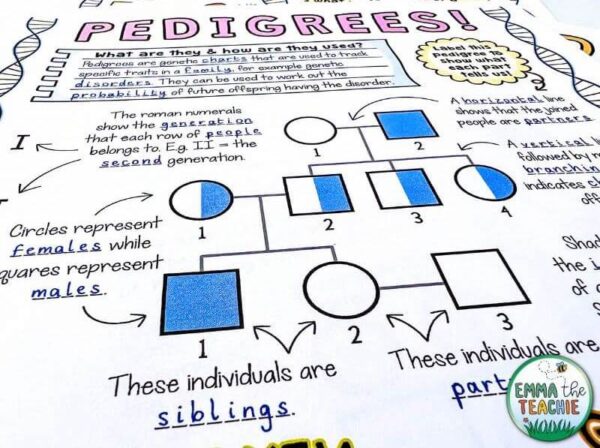 PEDIGREES!
What are they & how are they used?
Pedigrees are genetic charts that are used to track
specific traits in a family, for example genetic
disorders. They can be used to work out the
probability of future offspring having the disorder.
Label this
pedigree to
show what
each part
tells us!
The roman numerals
show the generation
that each row of people
belongs to. E.g. II = the
second generation.
I
A horizontal line
shows that the joined
people are partners
A vertical
followed by
branching
indicates
off
1
2
Circles represent
females while
squares represent
males.
1
2
3
4
Shad
the i
of
1
2
3
These individuals are
siblings.
These individuals are
part
EMMA the
TEACHIE